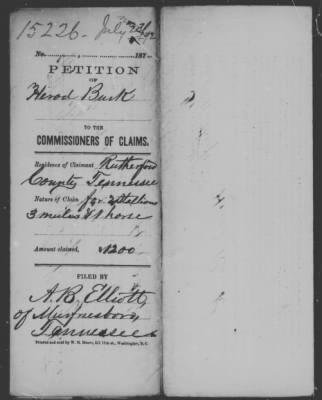 15226 July
No. 187
PETITION
OF
Herod Burk
TO THE
COMMISSIONERS OF CLAIMS.
Residence of Claimant Rutherford
County Tennessee
Nature of Claim for 2 Stallions
3 mules & 1 horse
Amount claimed, $1200
FILED BY
A. B. Elliott,
of Murfreesboro
Tennessee
Printed and sold by W. H. Moore, 511 11th st., Washington, D. C.